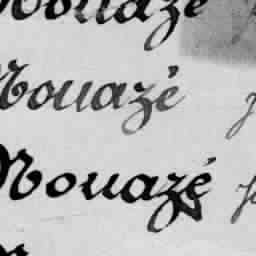 Nouazé
Nouazé
Nouazé